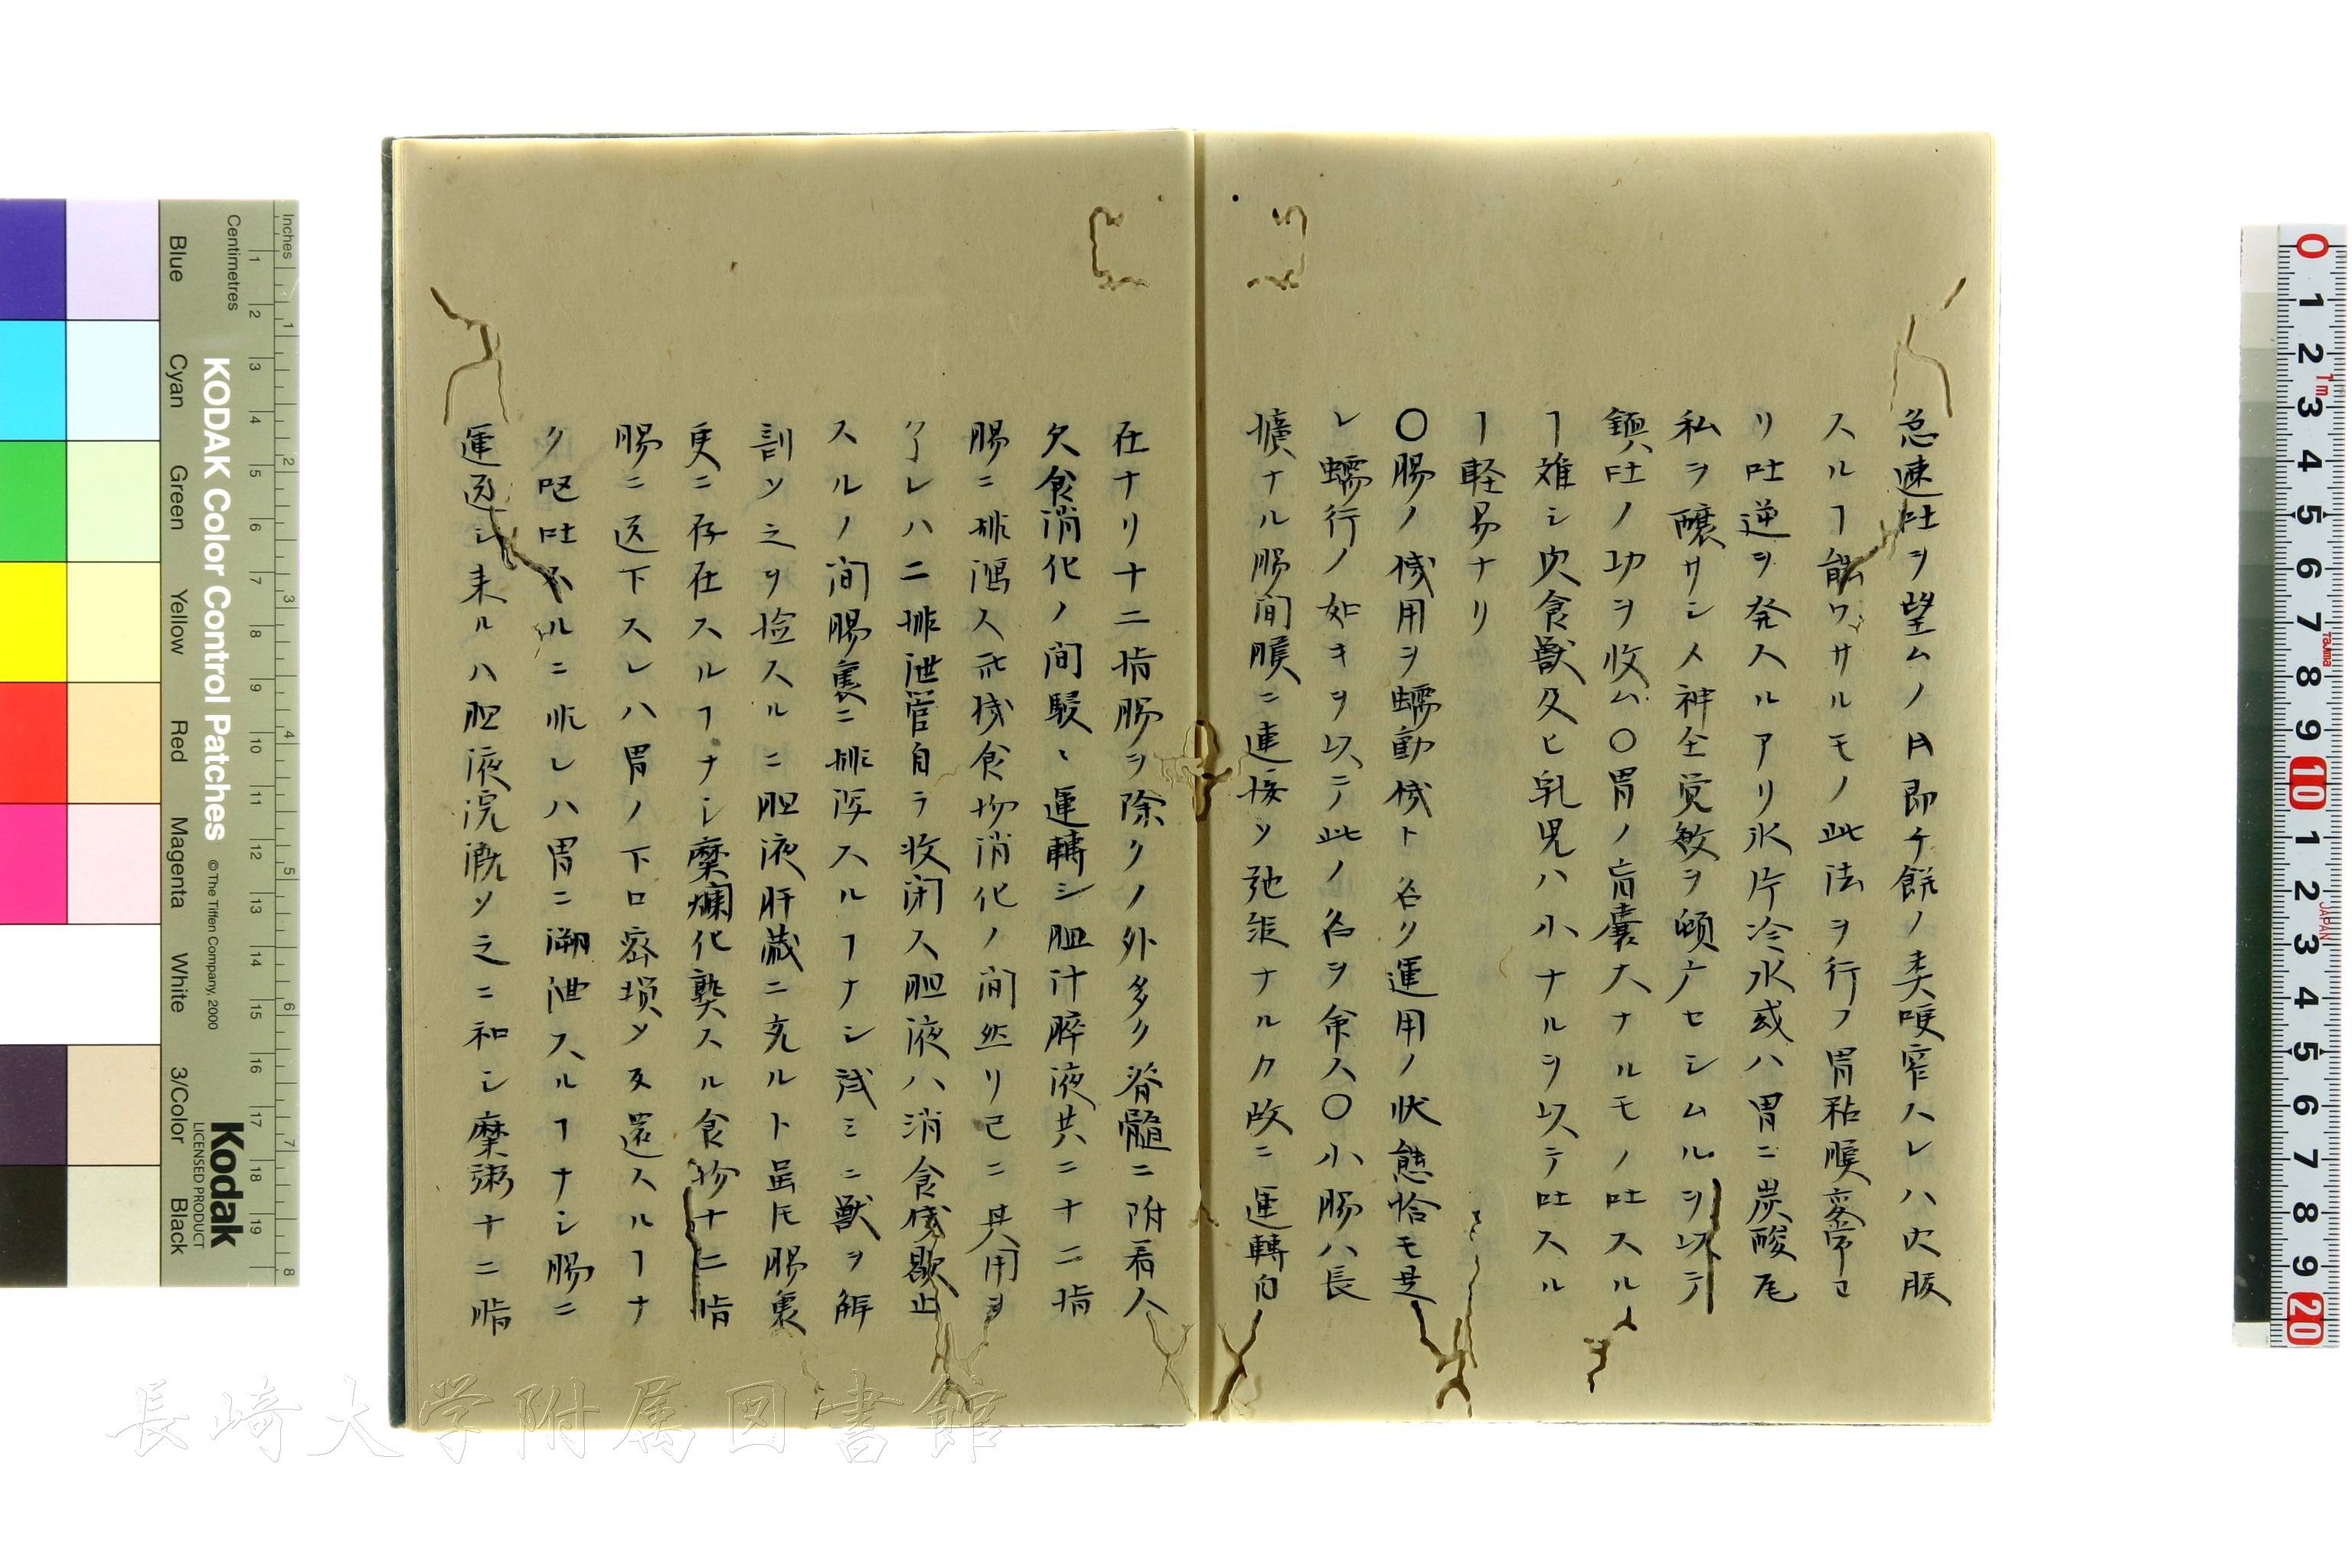 急速吐ヲ望ムノ日即チ餅ノ类咬窄スレハ欠服
スルヿ能ワサルモノ此法ヲ行フ胃粘膜変常ヨ
リ吐逆ヲ発スルアリ氷片冷水或ハ胃ニ炭酸瓦
私ヲ醸サシメ神全覚敏ヲ頓亡セシムルヲ以テ
鎮吐ノ功ヲ收ム〇胃ノ盲囊大ナルモノ吐スル
ヿ难シ欠食獣及ヒ乳児ハ小ナルヲ以テ吐スル
ヿ軽易ナリ
〇腸ノ儀用ヲ蠕動儀ト名ク運用ノ状態恰モ是
レ蠕行ノ如キヲ以テ此ノ名ヲ命ス〇小腸ハ長
擴ナル腸间膜ニ連接ソ弛張ナルカ故ニ運轉自
在ナリ十二指腸ヲ除クノ外多ク脊髄ニ附着人
欠食消化ノ间駸ヽ運轉シ胆汁膵液共ニ十二指
腸ニ排潟ス汎残食物消化ノ间然リ已ニ其用ヲ
了レハ二排泄管自ラ收闭ス胆液ハ消食儀歇止
スルノ间腸裏ニ排泻スルヿナシ試ミニ獣ヲ解
割ソ之ヲ捡スルニ胆液肝蔵ニ充ルト虽𪜈腸裏
更ニ存在スルヿナシ糜爛化熟スル食物十二指
腸ニ送下スレハ胃ノ下口密損メ反還スルヿナ
ク呕吐スルニ非レハ胃ニ溯泄スルヿナシ腸ニ
運送シ来ルハ胆液浣漑ソ之ニ和シ糜粥十二指
KODAK Color Control Patches
© The Tiffen Company, 2000
Kodak
LICENSED PRODUCT
Inches
Centimetres
Blue Cyan Green Yellow Red Magenta White 3/Color Black
長崎大学附属図書館